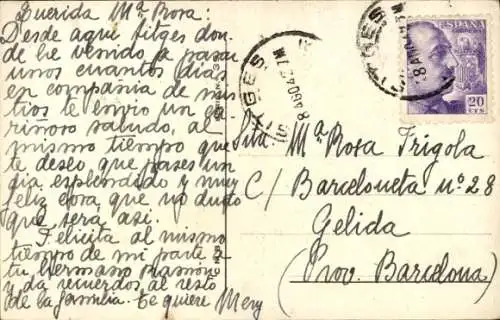 Querida Mª Rosa:
Desde aqui Sitges don-
de he venido a pasar
unos cuantos dias
en compañia de mis
tios te envio un ca-
riñoso saludo, al
mismo tiempo que
te deseo que pases un
dia esplendido y muy
feliz cosa que no dudo
que sera asi.
Felicita al mismo
tiempo de mi parte a
tu hermano Ramón
y da recuerdos al resto
de la familia. Te quiere Mery
Srta. Mª Rosa Frigola
C/ Barceloneta nº 28
Gelida
(Prov. Barcelona)
ESPAÑA
20
CTS